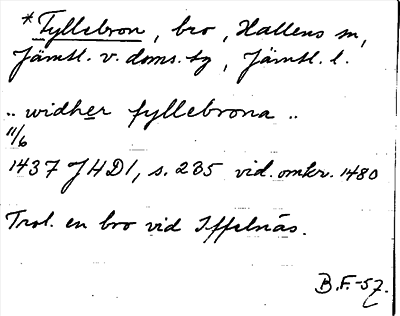 *Fyllebron, bro, Hallens sn,
Jämtl. v. doms. tg, Jämtl. l.
.. widher fyllebrona ..
11/6
1437 JHD1, s. 235 vid. omkr. 1480
Trol. en bro vid Iffelnäs.
B.F.-57.